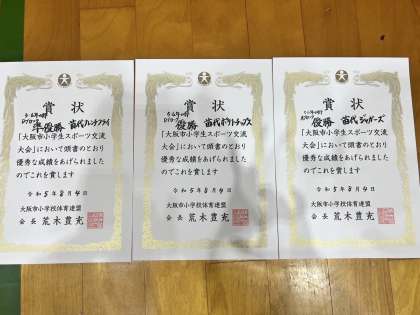 賞状
5・6年の部
Dブロック
準優勝 苗代ハンナファイ
「大阪市小学生スポーツ交流
大会」において頭書のとおり
優秀な成績をあげられました
のでこれを賞します
令和5年8月4日
大阪市小学校体育連盟
会長 荒木豊充
賞状
5・6年の部
優勝 苗代ポテトチップス
「大阪市小学生スポーツ交流
大会」において頭書のとおり
優秀な成績をあげられました
のでこれを賞します
令和5年8月4日
大阪市小学校体育連盟
会長 荒木豊充
賞状
優勝 苗代ジャガーズ
「大阪市小学生スポーツ交流
大会」において頭書のとおり
優秀な成績をあげられました
のでこれを賞します
令和5年8月4日
大阪市小学校体育連盟
会長 荒木豊充